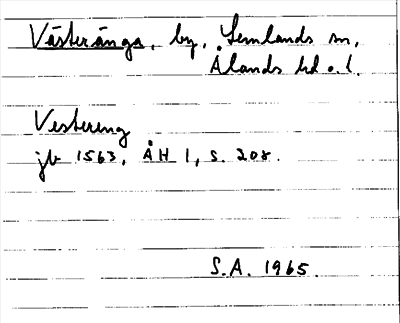 Västerånga, by, Lemlands sn,
Ålands hd o. l.
Vestereng
jb 1563, ÅH 1, s. 208.
S.A. 1965.